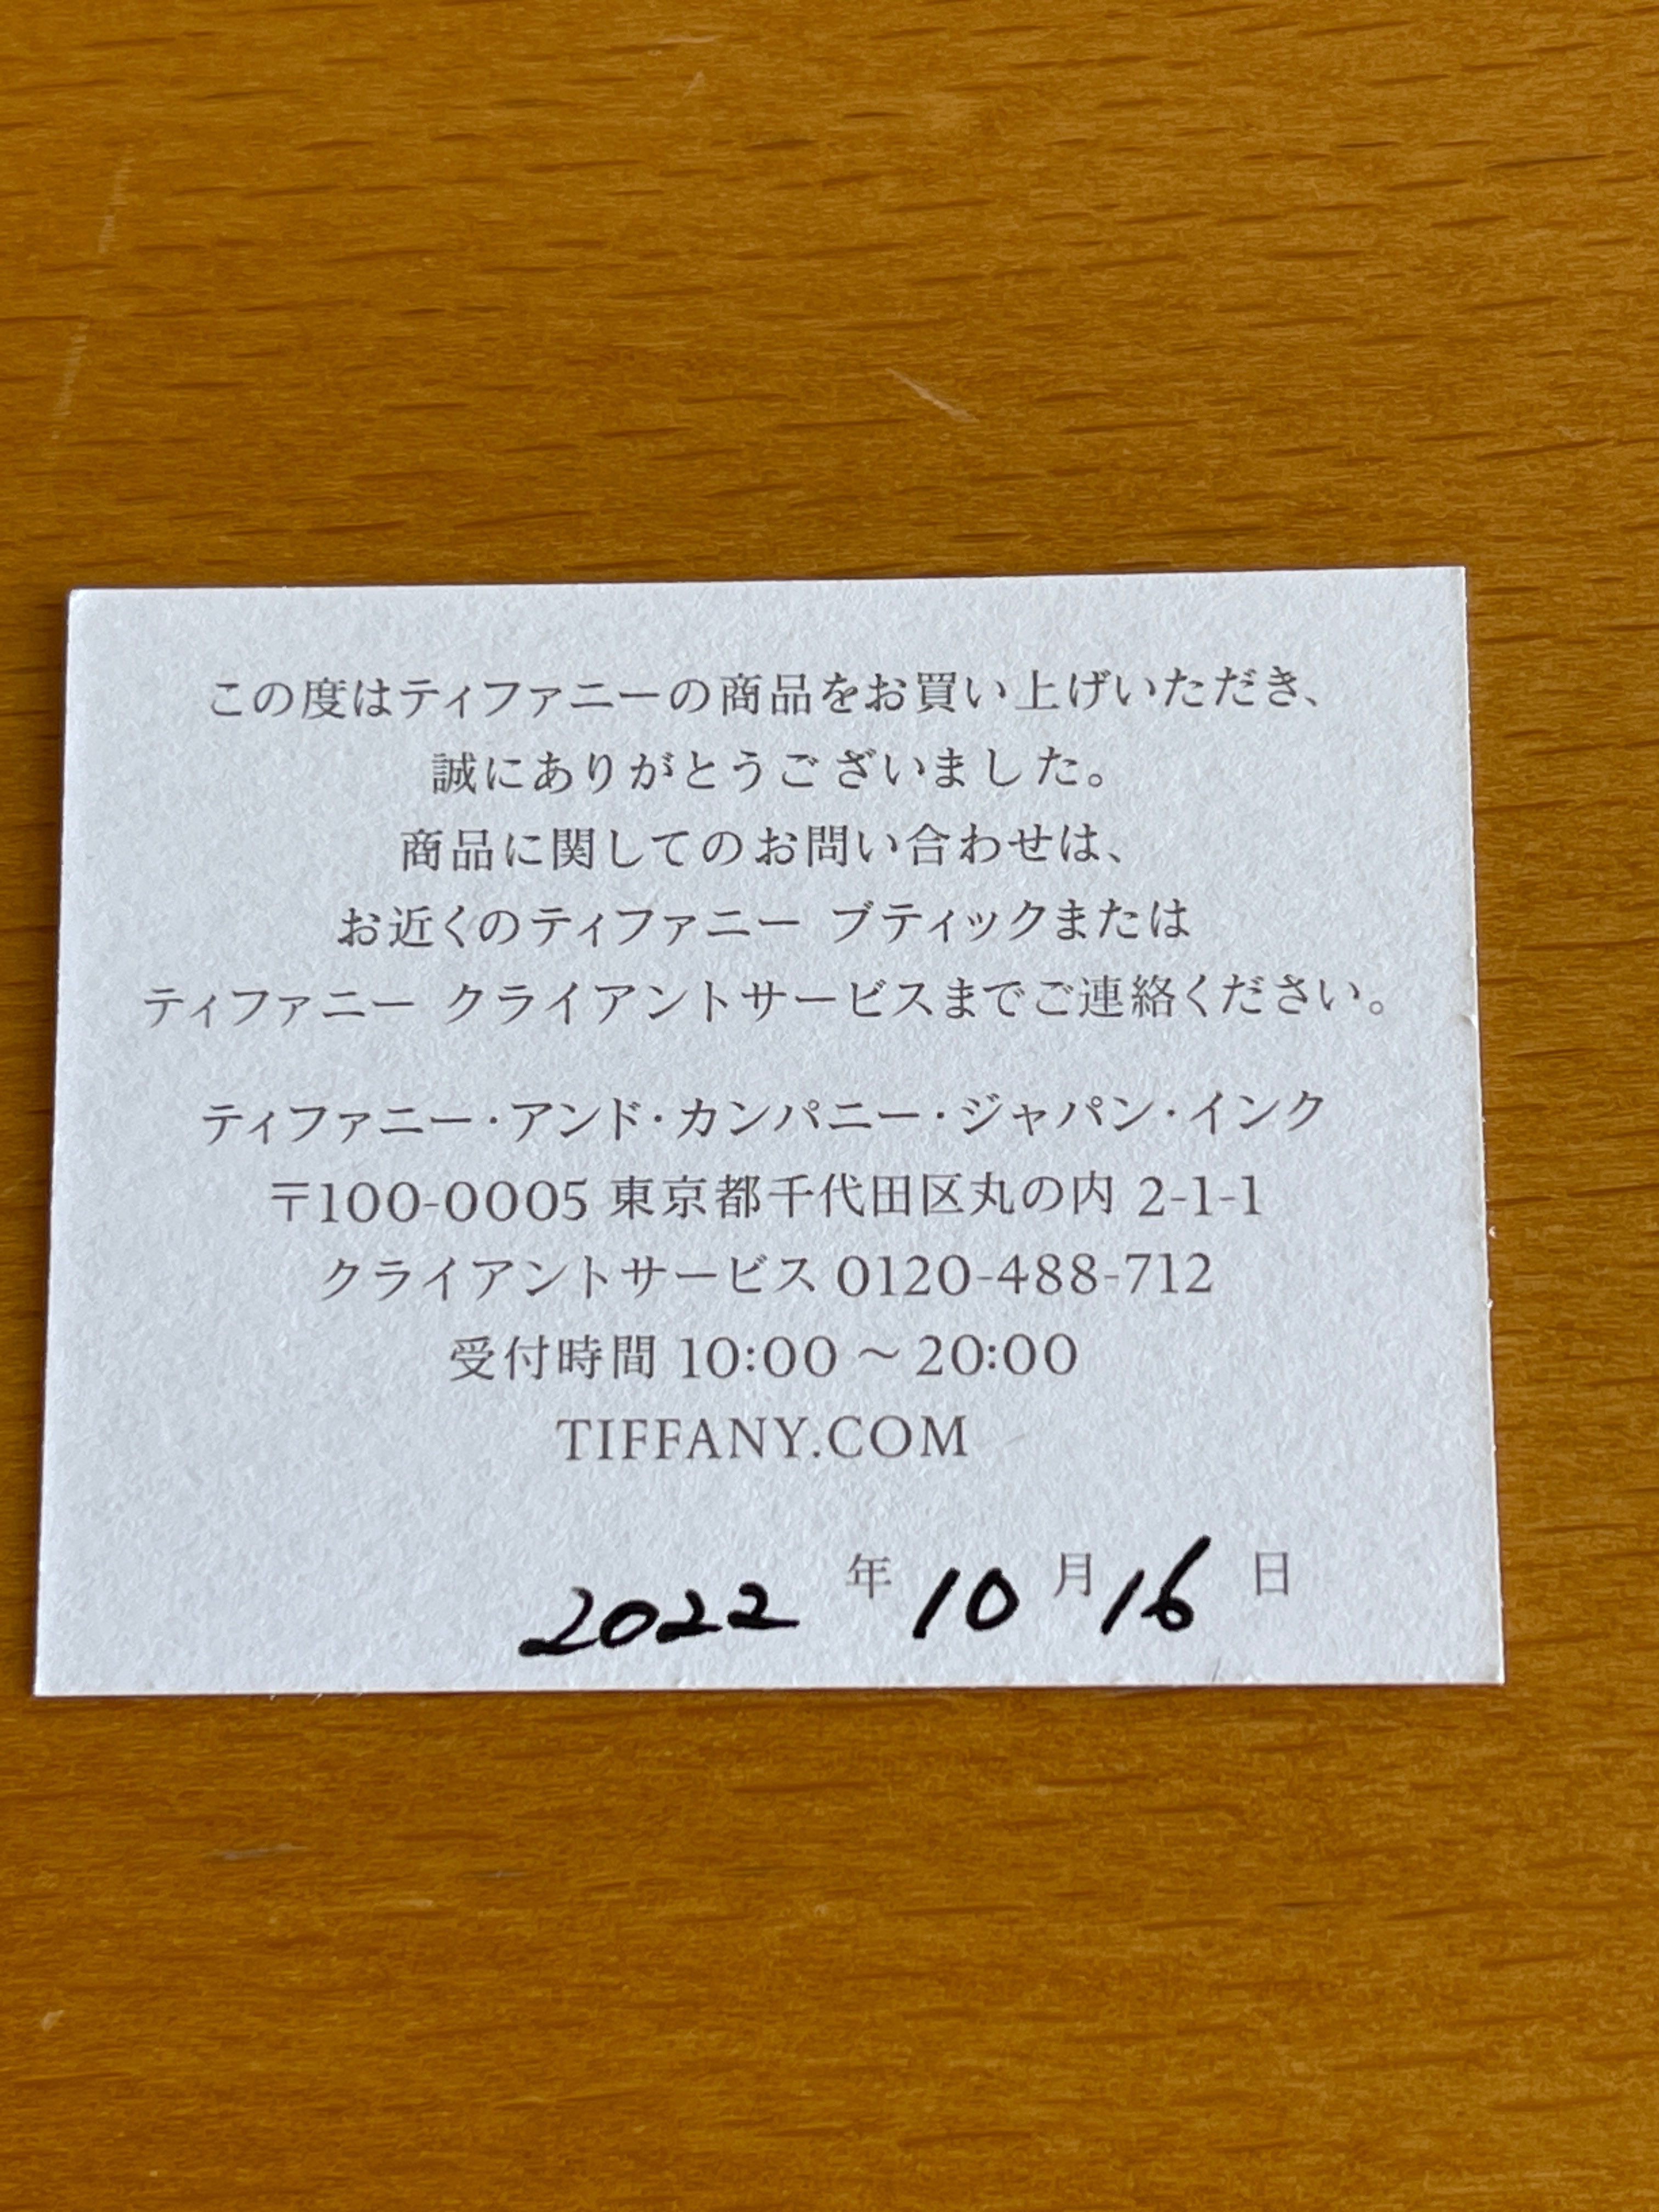 この度はティファニーの商品をお買い上げいただき、
誠にありがとうございました。
商品に関してのお問い合わせは、
お近くのティファニー ブティックまたは
ティファニー クライアントサービスまでご連絡ください。
ティファニー・アンド・カンパニー・ジャパン・インク
〒100-0005 東京都千代田区丸の内 2-1-1
クライアントサービス 0120-488-712
受付時間 10:00 ～ 20:00
TIFFANY.COM
2022 年 10 月 16 日